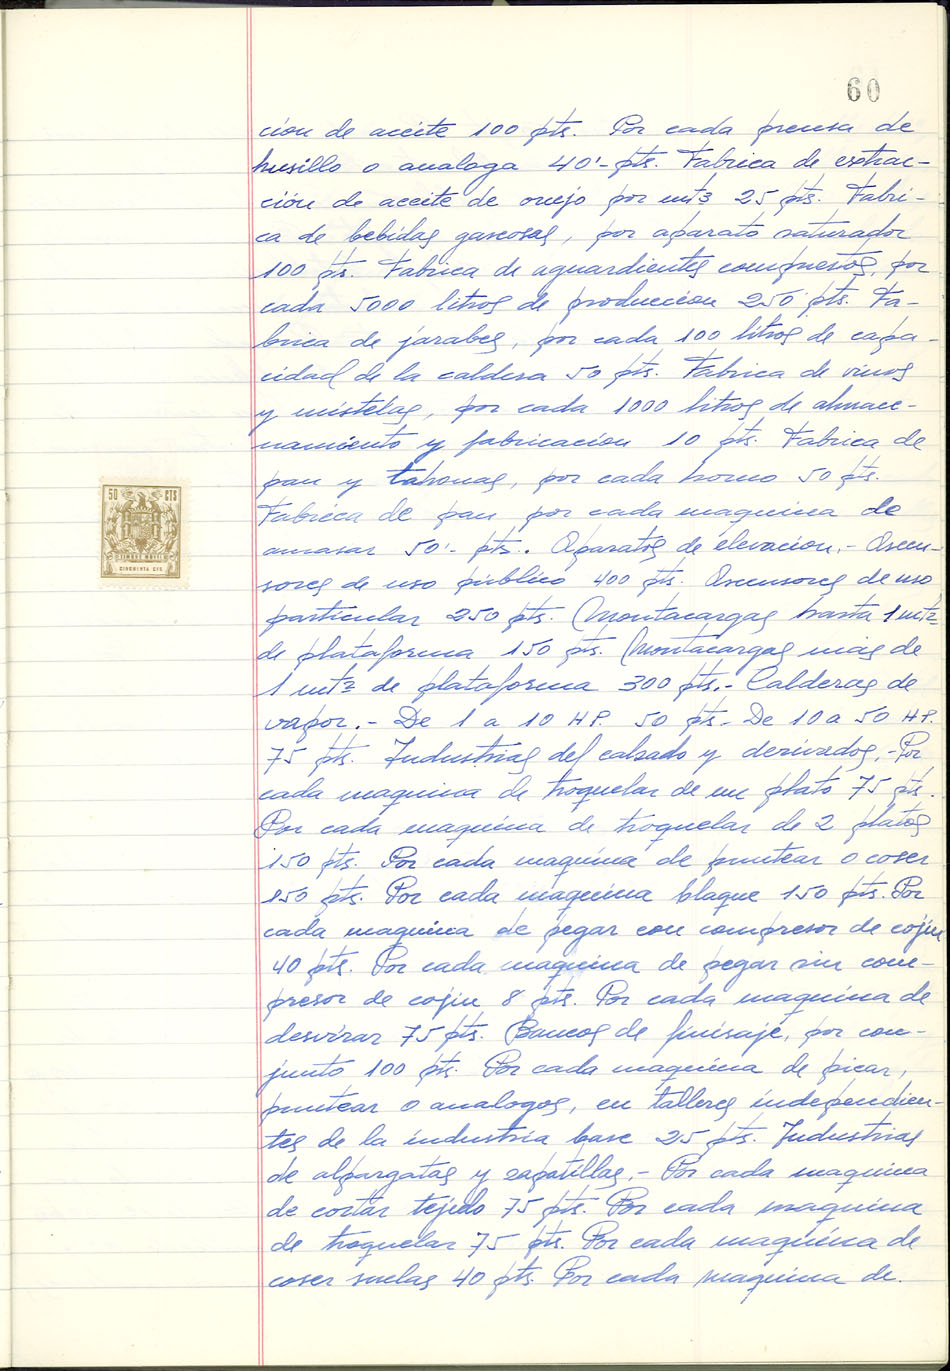 60
ción de aceite 100 pts. Por cada prensa de
husillo o analoga 40'- pts. Fabrica de extrac-
ción de aceite de orujo por mt3 25 pts. Fabri-
ca de bebidas gaseosas, por aparato saturador
100 pts. Fabrica de aguardientes compuestos, por
cada 5000 litros de produccion 250 pts. Fa-
brica de jarabes, por cada 100 litros de capa-
cidad de la caldera 50 pts. Fabrica de vinos
y mistelas, por cada 1000 litros de almace-
namiento y fabricación 10 pts. Fabrica de
pan y tahonas, por cada horno 50 pts.
Fabrica de pan, por cada maquina de
amasar 50'- pts. Aparatos de elevacion.- Ascen-
sores de uso público 400 pts. Ascensores de uso
particular 250 pts. Montacargas hasta 1 mt2
de plataforma 150 pts. Montacargas más de
1 mt2 de plataforma 300 pts.- Calderas de
vapor.- De 1 a 10 HP. 50 pts.- De 10 a 50 HP.
75 pts. Industrias del calzado y derivados.- Por
cada maquina de troquelar de un plato 75 pts.
Por cada maquina de troquelar de 2 platos
150 pts. Por cada maquina de puntear o coser
150 pts. Por cada maquina blaque 150 pts. Por
cada maquina de pegar con compresor de cojin
40 pts. Por cada maquina de pegar sin com-
presor de cojin 8 pts. Por cada maquina de
desvirar 75 pts. Bancos de finisaje, por con-
junto 100 pts. Por cada maquina de picar,
puntear o analogos, en talleres independien-
tes de la industria base 25 pts. Industrias
de alpargatas y zapatillas.- Por cada maquina
de cortar tejido 75 pts. Por cada maquina
de troquelar 75 pts. Por cada maquina de
coser suelas 40 pts. Por cada maquina de.
50 CTS
TIMBRE MOVIL
CINCUENTA CTS